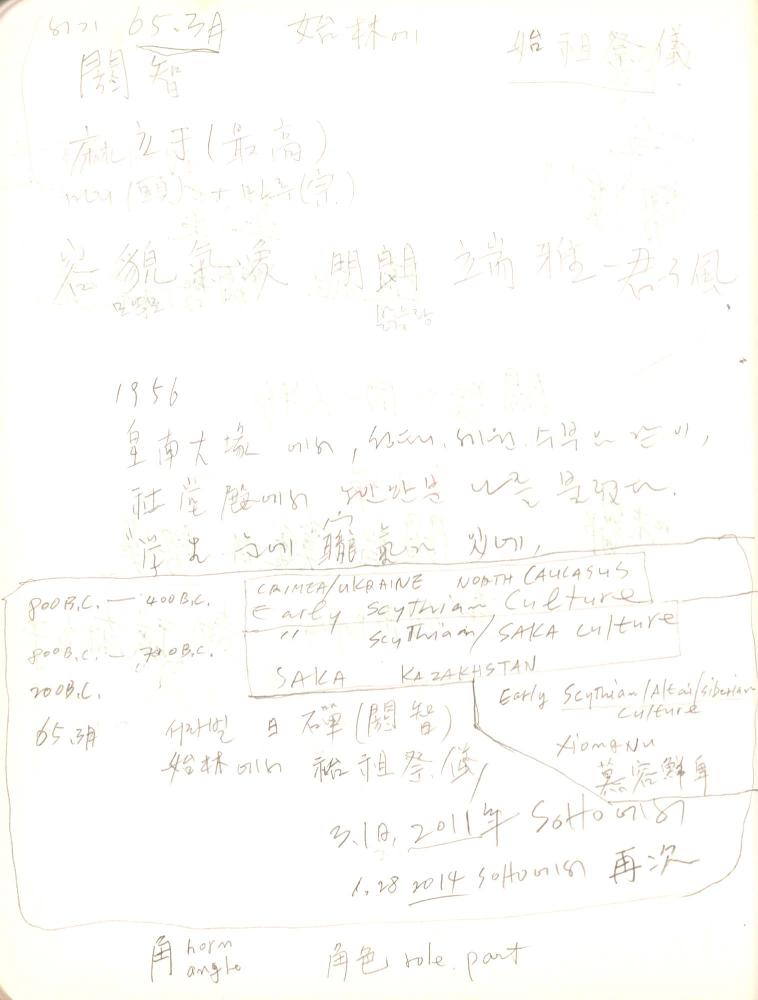 서기 65.3月 始林에 始祖祭儀
閼智
麻立干(最高)
마리(頭) + 마루(宗)
容貌氣象 明朗 端雅-君子風
1956
皇南大塚 에서,
殿에서 나를 불렀다.
氣가 있네,
CRIMEA/UKRAINE NORTH CAUCASUS
800B.C. — 400B.C. Early Scythian Culture
〃 Scythian/SAKA culture
800B.C. — 700B.C.
SAKA KAZAKHSTAN
200B.C.
Early Scythian/Altai/Siberian
culture
65.3月 서라벌 (閼智)
XIONGNU
始林에서 始祖祭儀,
慕容鮮卑
3.1日, 2011年 SOHO에서
1.28 2014 SOHO에서 再次
角 horn
angle
角色 role. part